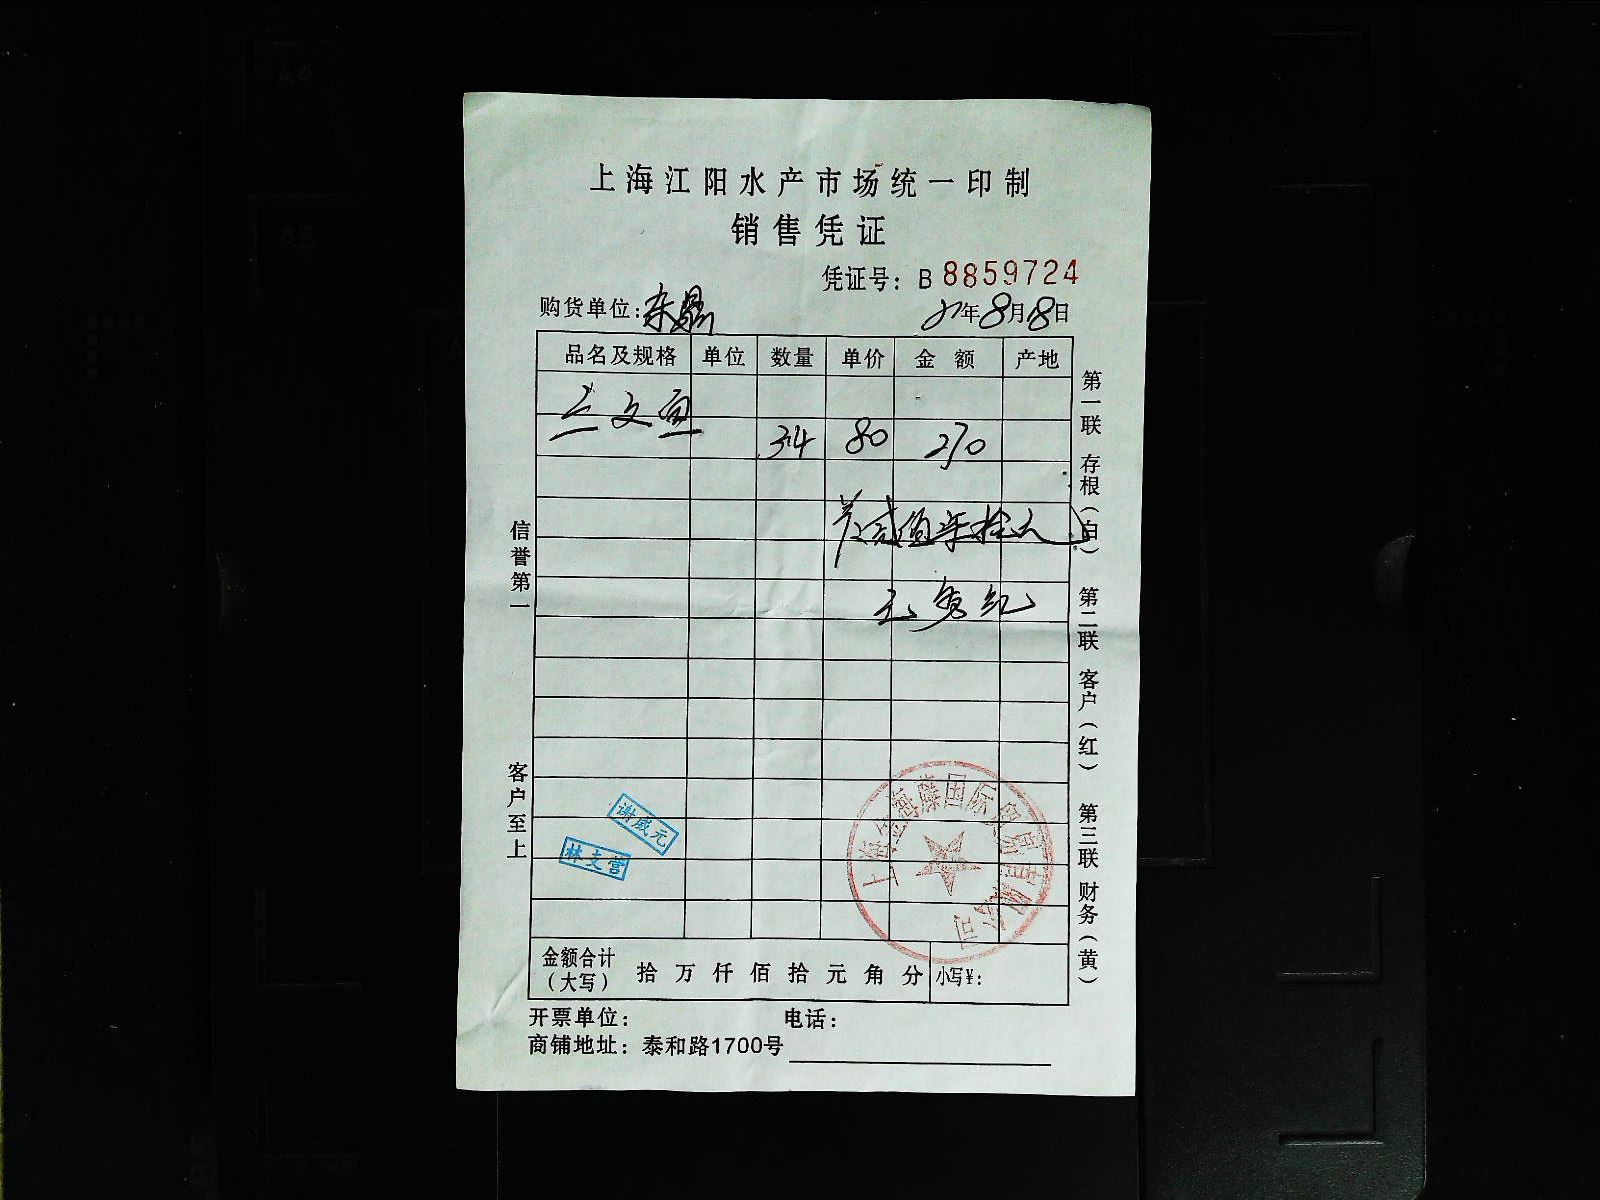 上海江阳水产市场统一印制
销售凭证
凭证号：B 8859724
购货单位：东
年8月18日
品名及规格 单位 数量 单价 金额 产地
三文鱼
34 80 270
贰佰柒拾元
信誉第一
客户至上
第一联 存根（白） 第二联 客户（红） 第三联 财务（黄）
谢成元
林支营
上海 海藤国际贸易有限公司
金额合计（大写） 拾 万 仟 佰 拾 元 角 分 小写¥：
开票单位： 电话：
商铺地址：泰和路1700号